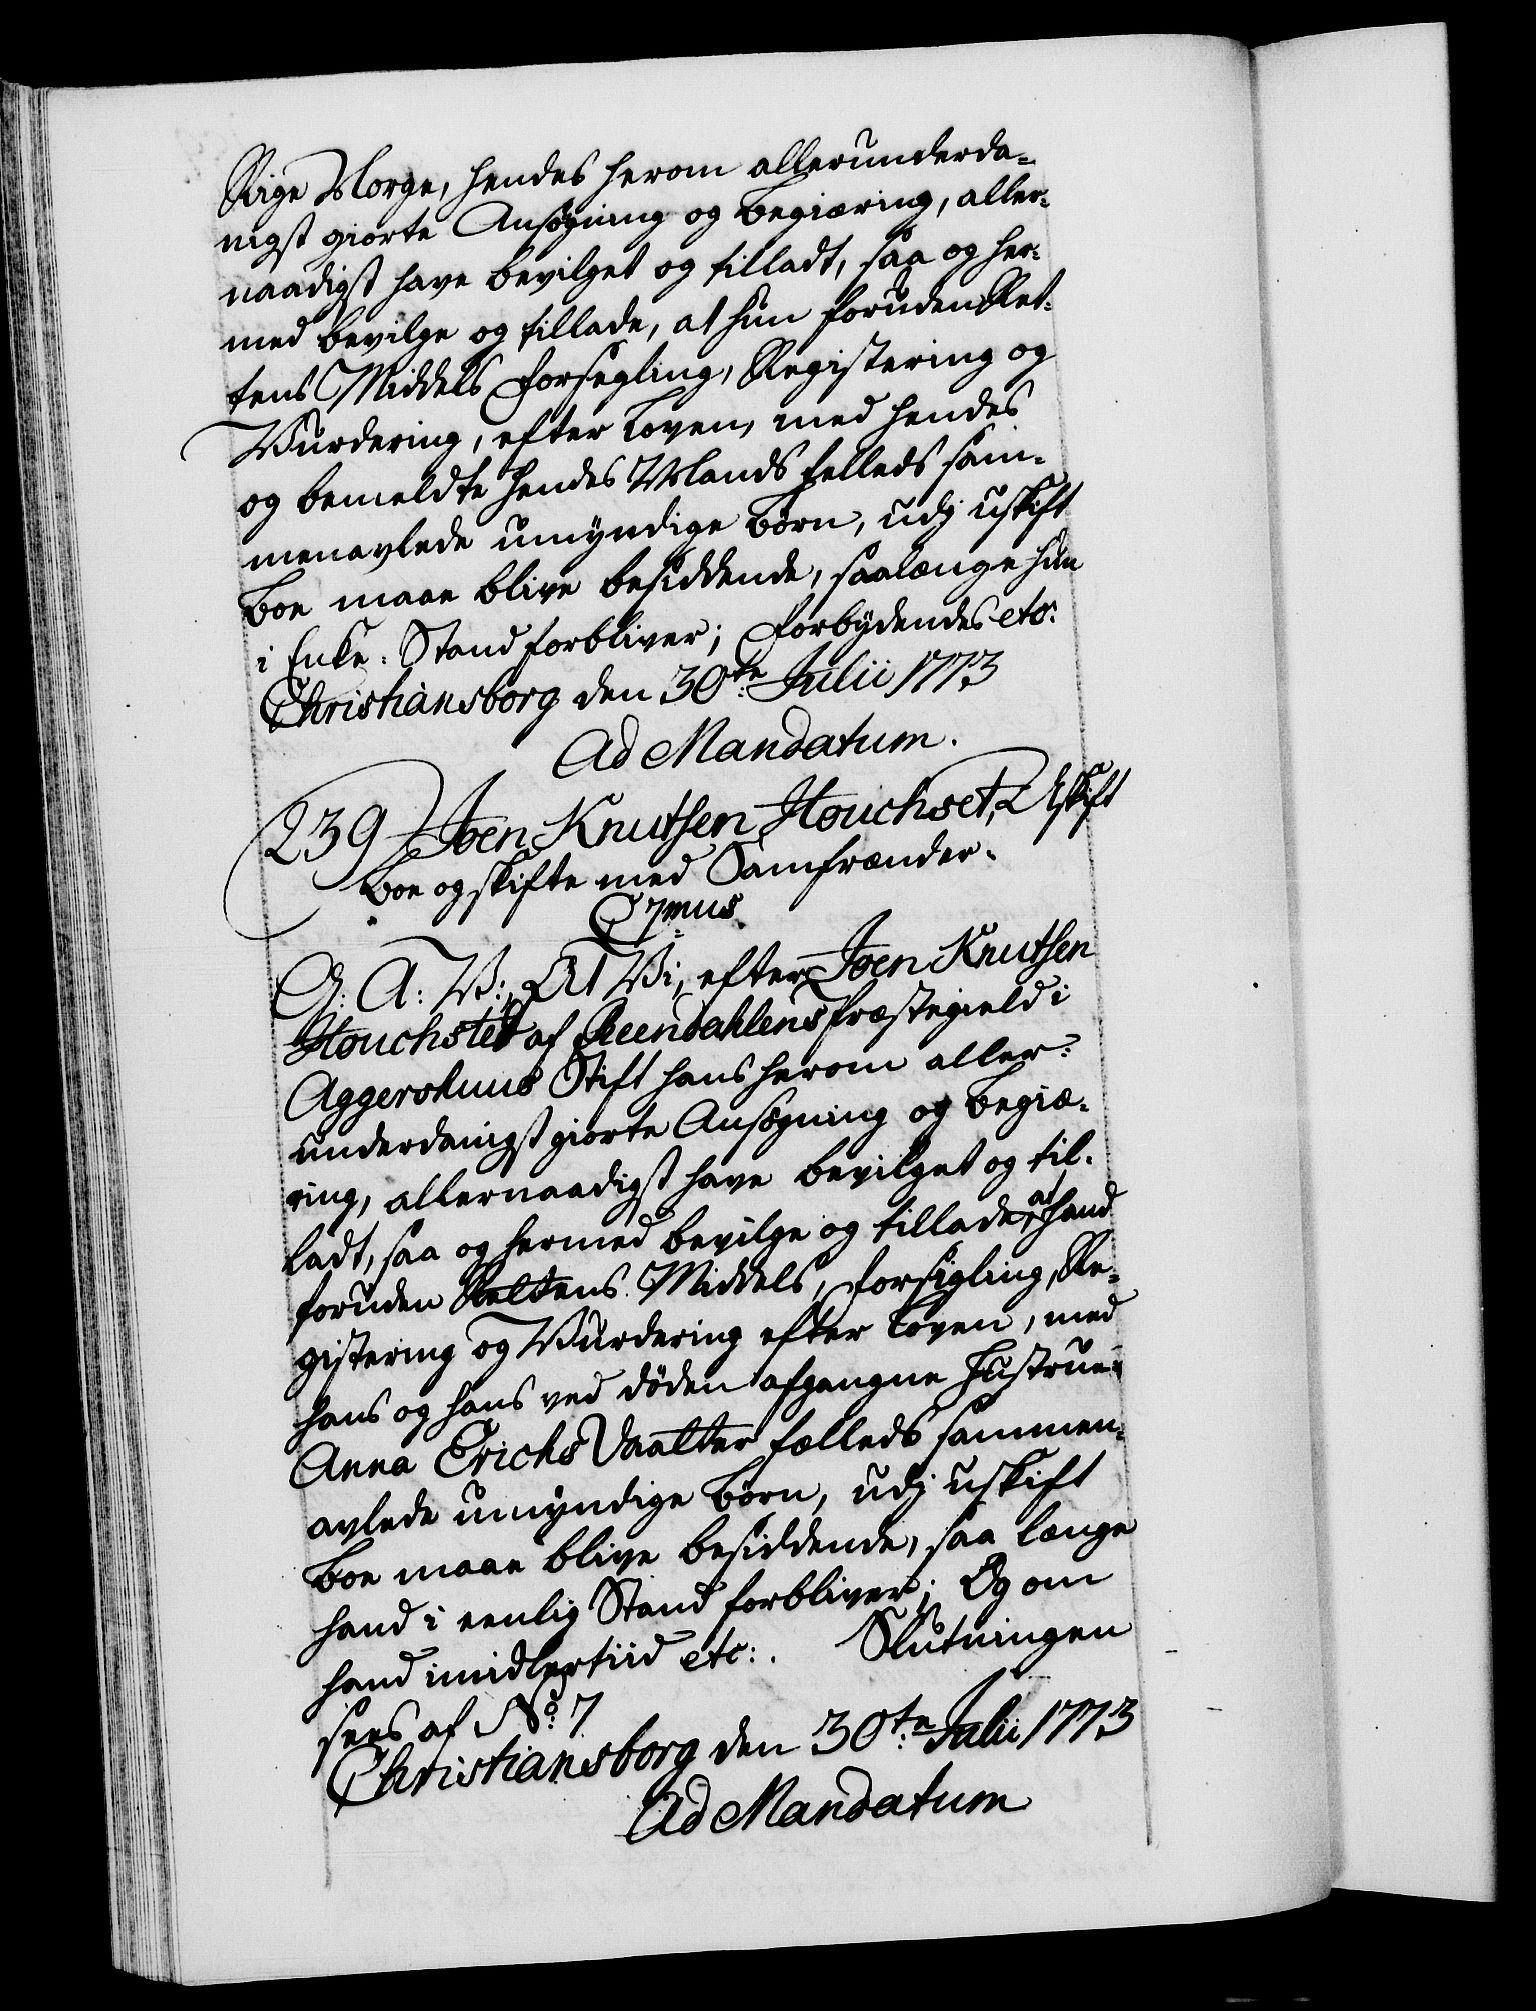 Rige Norge, hendes herom allerunderda-
nigst giorte Ansøgning og Begiæring, aller-
naadigst have bevilget og tilladt, saa og her-
med bevilge og tillade, at hun foruden Ret-
tens Middels Forsegling, Registering og
Vurdering, efter Loven, med hendes
og bemeldte hendes Mands felleds sam-
menavlede umyndige Børn, udj uskift
Boe maae blive besiddende, saalænge hun
i Enke-Stand forbliver; Forbydendes etc:
Christiansborg den 30te Julii 1773
Ad Mandatum.
239 Joen Knutsen Houchset, Uskift
Boe og skifte med Samfrænder.
C 7mus
G: A: V:, At Vi, efter Joen Knutsen
Houchsted af Reendahlens Præstegield i
Aggershuus Stift hans herom aller-
underdanigst giorte Ansøgning og Begiæ-
ring, allernaadigst have bevilget og til-
ladt, saa og hermed bevilge og tillade, at hand
foruden Rettens Middels, Forsigling, Re-
gistering og Vurdering efter Loven, med
hans og hans ved Døden afgangne Hustrue
Anna Erichs Daatter fælleds sammen-
avlede umyndige Børn, udj uskift
Boe maae blive besiddende, saa længe
hand i eenlig Stand forbliver; Og om
hand imidlertiid etc:. Slutningen
sees af No: 7
Christiansborg den 30te Julii 1773
Ad Mandatum